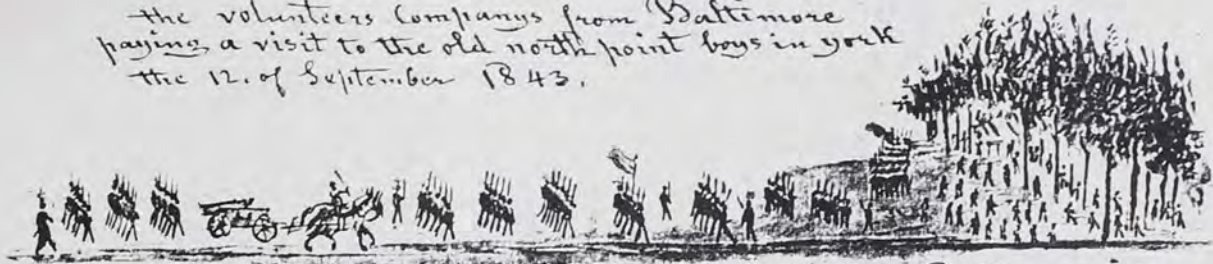 the volunteers Companys from Baltimore
paying a visit to the old north point boys in york
the 12. of September 1843.